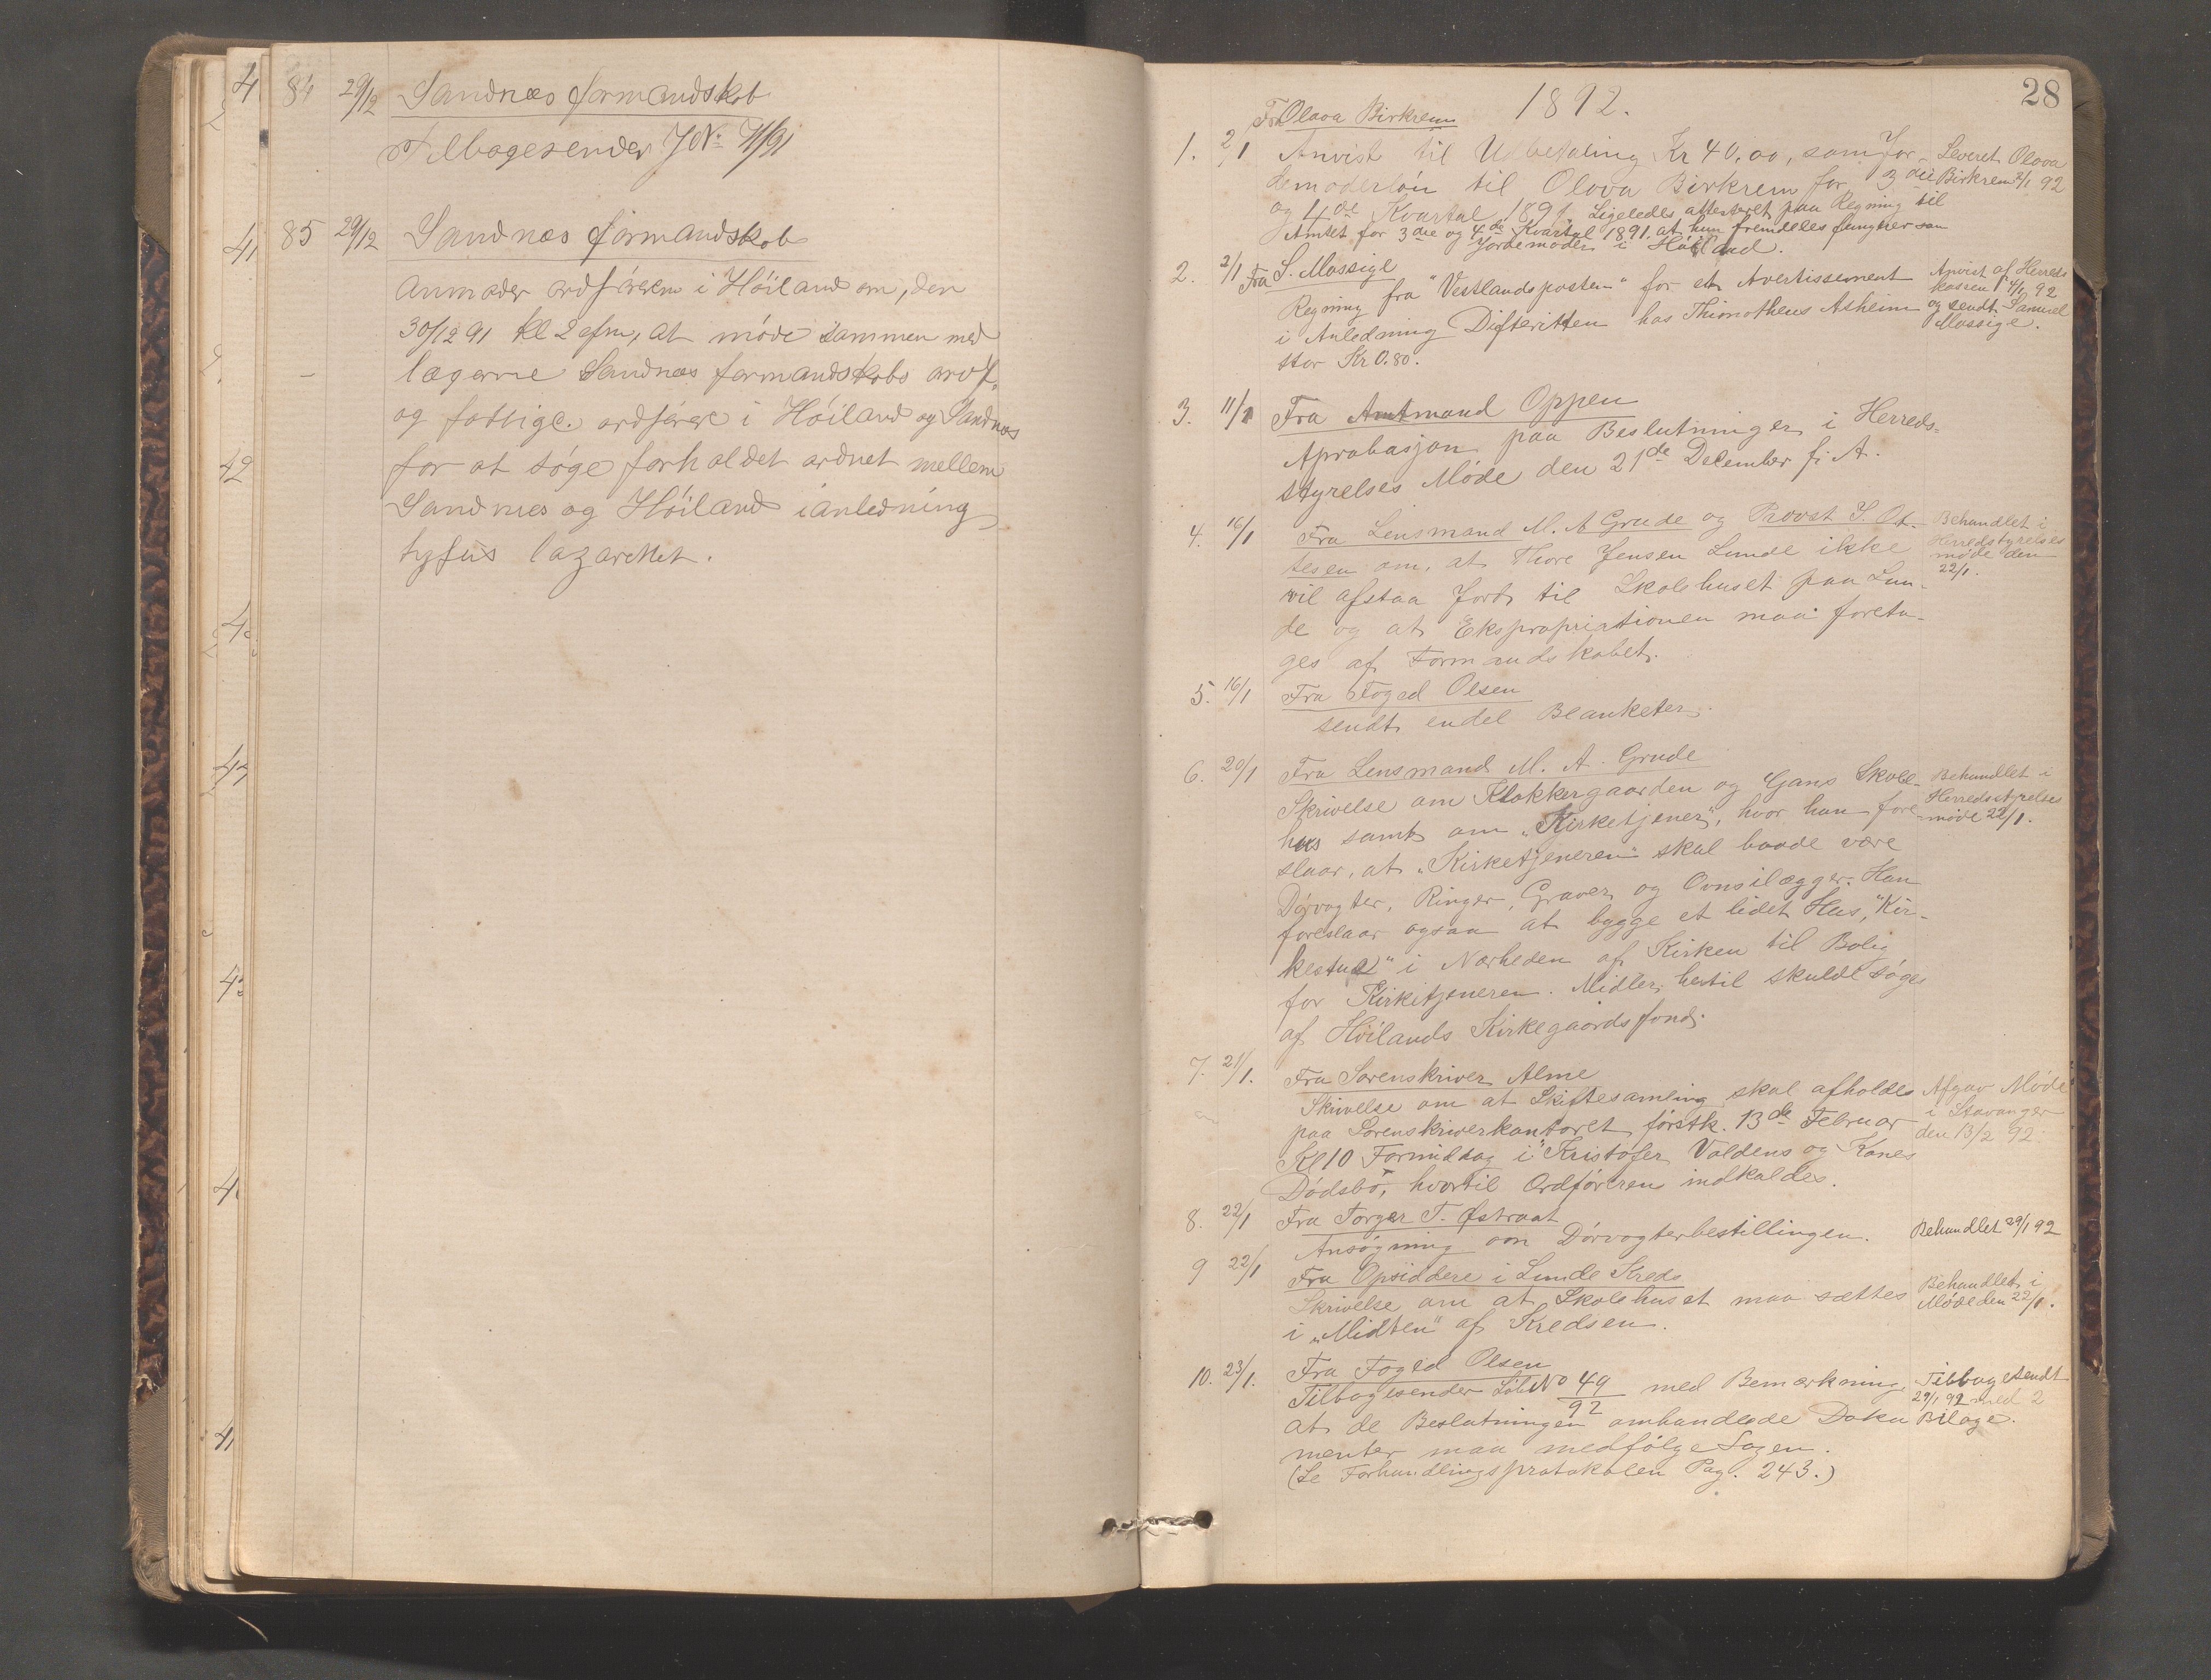 84 29/12 Sandnæs formandskab
Tilbagesender J№ 71/91
85 29/12 Sandnæs formandskab
anmoder ordføreren i Høiland om, den
30/12 91 kl 2 efm, at møde sammen med
lægerne Sandnæs formandskabs ordf.
og fattige. ordfører i Høiland og Sandnæs
for at søge forholdet ordnet mellem
Sandnes og Høiland ianledning
tyfus lazarettet.
28
1892.
Fra Olava Birkrem
1. 2/1 Anvist til Udbetaling Kr 40,00, som Jor-
demoderløn til Olava Birkrem for 3die
og 4de Kvartal 1891. Ligeledes attesteret paa Regning til
Amtet for 3die og 4de Kvartal 1891, at hun fremdeles fungerer som
Jordemoder i Høiland.
Leveret Olava
Birkrem 2/1 92
2. 2/1 Fra S. Mossige
Regning fra "Vestlandsposten" for et Avertissement
i Anledning Difteritten hos Thimotheus Asheim
stor Kr 0.80.
Anvist af Herreds
kassen 4/1 92
og sendt Samuel
Mossige.
3. 11/1 Fra Amtmand Oppen
Aprobasjon paa Beslutninger i Herreds-
styrelses Møde den 21de December f. A.
4. 16/1 Fra Lensmand M. A Grude og Provst S. Ot-
tesen om, at Thore Jensen Lunde ikke
vil afstaa Jord til Skolehuset paa Lun-
de og at Ekspropriationen maa foreta-
ges af Formandskabet.
Behandlet i
Herredstyrelses
møde den
22/1.
5. 16/1 Fra Foged Olsen
sendt endel Blanketer.
6. 20/1 Fra Lensmand M. A. Grude
Skrivelse om Klokkergaarden og Gans Skole-
hus samt om „Kirketjener", hvor han fore-
slaar, at „Kirketjeneren" skal baade være
Dørvogter, Ringer, Graver og Ovnsilægger. Han
foreslaar ogsaa at bygge et lidet Hus, "Kir-
kestue" i Nærheden af Kirken til Bolig
for Kirkitjeneren. Midler hertil skulde søges
af Høilands Kirkegaardsfond.
Behandlet i
Herredsstyrelses
møde 22/1.
7. 21/1. Fra Sorenskriver Alme
Skrivelse om at Skiftesamling skal afholdes
paa Sorenskriverkontoret førstk. 13de Februar
Kl 10 Formiddag i Kristofer Valdens og Kones
Dødsbo, hvortil Ordføreren indkaldes.
Afgav Møde
i Stavanger
den 13/2 92.
8. 22/1 Fra Torger T. Østraat
Ansøgning om Dørvogterbestillingen.
Behandlet 29/1 92
9 22/1 Fra Opsiddere i Lunde Kreds
Skrivelse om at Skolehuset maa sættes
i „Midten" af Kredsen.
Behandlet i
Møde den 22/1.
10. 23/1. Fra Foged Olsen
Tilbagesender Løb№ 49/92 med Bemærkning
at de Beslutningen omhandlede Doku
menter maa medfølge Sagen.
(Se Forhandlingsprotokolen Pag. 243.)
Tilbagesendt
29/1 92 med 2
Bilage.